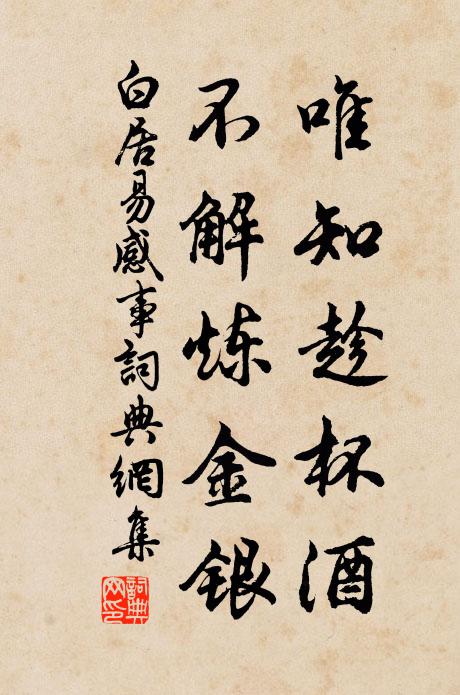 唯知趁杯酒
不解炼金銀
白居易感事詞典網集
詞典網印